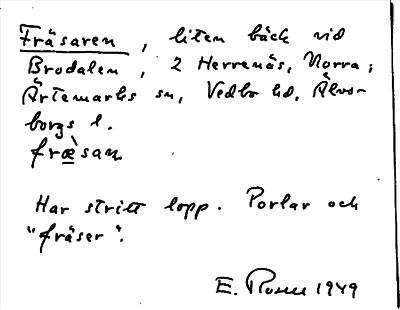 Fräsaren, liten bäck vid
Brodalen, 2 Herrenäs, Norra;
Ärtemarks sn, Vedbo hd, Älvs-
borgs l.
fræ̀san
Har stritt lopp. Porlar och
"fräser".
E. Rosell 1949